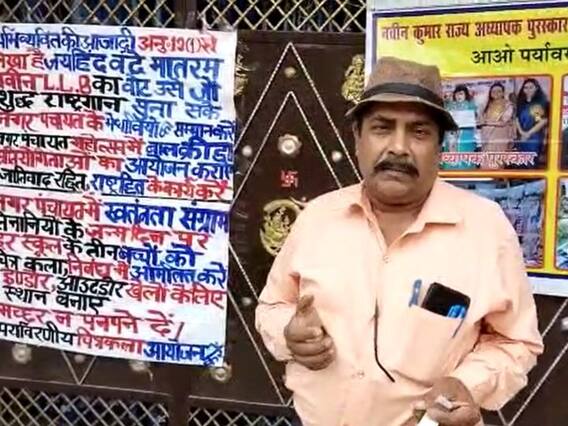 अभिव्यक्ति की आजादी अनु. 19(1) से
लिखा है जयहिंद वंदे मातरम
नवीन L.L.B का वोट उसे जो
शुद्ध राष्ट्रगान सुना सके
नगर पंचायत के मेधावियों का सम्मान करे
नगर पंचायत महोत्सव में बाल क्रीड़ा
प्रतियोगिताओं का आयोजन कराए
जातिवाद रहित, राष्ट्रहित के कार्य करे
नगर पंचायत में स्वतंत्रता संग्राम
सेनानियों के जन्म दिन पर
हर स्कूल के तीन बच्चों को
चित्र कला, निबंध में आमंत्रित करे
इण्डोर, आउटडोर खेलो के लिए
स्थान बनाए
मच्छर न पनपने दें।
पर्यावरणीय चित्रकला आयोजन हो
नवीन कुमार राज्य अध्यापक पुरस्कार
आओ पर्याव
ध्यापक पुरस्कार